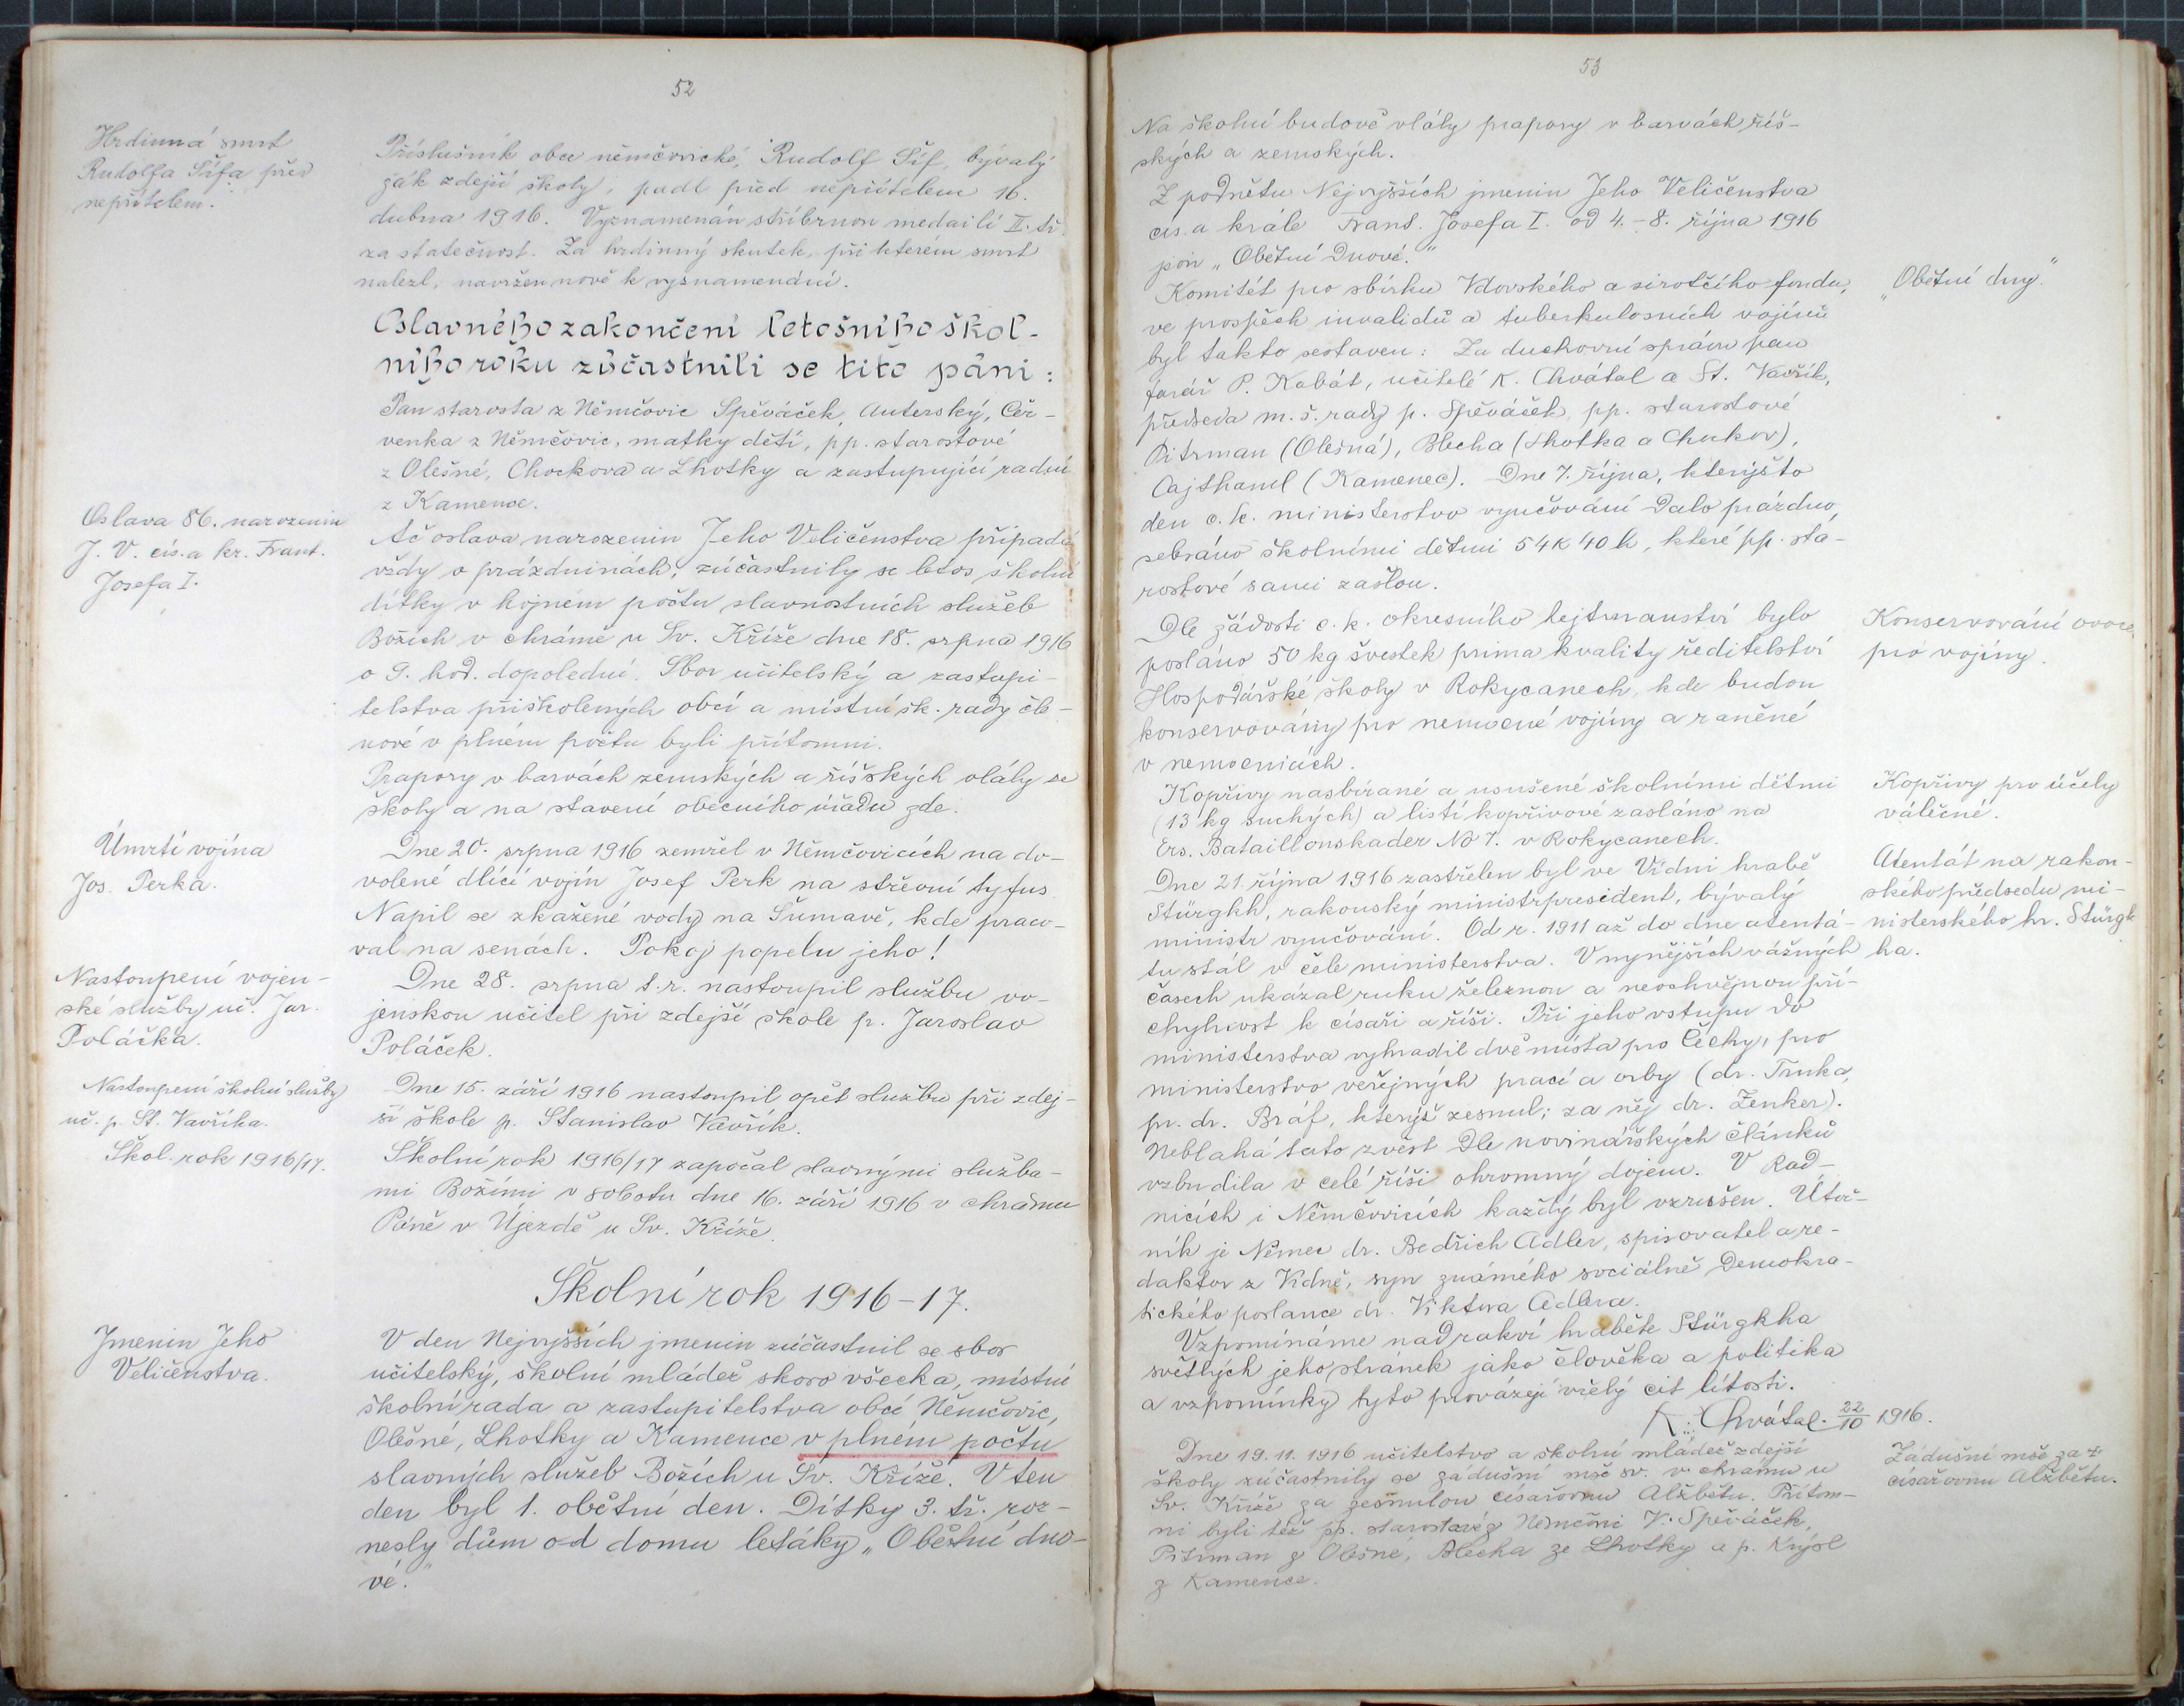 52
Hrdinná smrt
Rudolfa Šífa před
nepřítelem.
Příslušník obce němčovické, Rudolf Šíf, bývalý
žák zdejší školy, padl před nepřítelem 16.
dubna 1916. Vyznamenán stříbrnou medailí II. tř.
za statečnost. Za hrdinný skutek, při kterém smrt
nalezl, navržen nově k vyznamenání.
Oslavného zakončení letošního škol-
ního roku zúčastnili se tito páni:
Pan starosta z Němčovic Spěváček, Auterský, Čer-
venka z Němčovic, matky dětí, pp. starostové
z Olešné, Chockova a Lhotky a zastupující radní
z Kamence.
Oslava 86. narozenin
J. V. cís. a kr. Frant.
Josefa I.
Ač oslava narozenin Jeho Veličenstva připadá
vždy o prázdninách, zúčastnily se letos školní
dítky v hojném počtu slavnostních služeb
Božích v chrámě u Sv. Kříže dne 18. srpna 1916
o 9. hod. dopolední. Sbor učitelský a zastupi-
telstva přiškolených obcí a místní šk. rady čle-
nové v plném počtu byli přítomni.
Prapory v barvách zemských a říšských vlály se
školy a na stavení obecního úřadu zde.
Úmrtí vojína
Jos. Perka.
Dne 20. srpna 1916 zemřel v Němčovicích na do-
volené dlící vojín Josef Perk na střevní tyfus.
Napil se zkažené vody na Šumavě, kde praco-
val na senách. Pokoj popelu jeho!
Nastoupení vojen-
ské služby uč. Jar.
Poláčka.
Dne 28. srpna t. r. nastoupil službu vo-
jenskou učitel při zdejší škole p. Jaroslav
Poláček.
Nastoupení školní služby
uč. p. St. Vavříka.
Dne 15. září 1916 nastoupil opět službu při zdej-
ší škole p. Stanislav Vavřík.
Škol. rok 1916/17.
Školní rok 1916/17 započal slavnými službа-
mi Božími v sobotu dne 16. září 1916 v chrámu
Páně v Újezdě u Sv. Kříže.
Školní rok 1916-17.
Jmenin Jeho
Veličenstva.
V den Nejvyšších jmenin zúčastnil se sbor
učitelský, školní mládež skoro všecka, místní
školní rada a zastupitelstva obcí Němčovic,
Olešné, Lhotky a Kamence v plném počtu
slavných služeb Božích u Sv. Kříže. V ten
den byl 1. obětní den. Dítky 3. tř. roz-
nesly dům od domu letáky „Obětní dno-
vé."
53
Na školní budově vlály prapory v barvách říš-
ských a zemských.
Z podnětu Nejvyšších jmenin Jeho Veličenstva
cís. a krále Frant. Josefa I. od 4.-8. října 1916
„Obětní Dnové."
Komitét pro sbírku Vdovského a sirotčího fondu,
ve prospěch invalidů a tuberkulosních vojínů
byl takto sestaven: Za duchovní správu pan
farář P. Kabát, učitelé K. Chvátal a St. Vavřík,
předseda m. š. rady p. Spěváček, pp. starostové
Pitrman (Olešná), Blecha (Lhotka a Chockov),
Cajthaml (Kamenec). Dne 7. října, kterýžto
den c. k. ministerstvo vyučování dalo prázdno,
sebráno školními dětmi 54 K 40 h, které pp. sta-
rostové sami zašlou.
„Obětní dny."
Dle žádosti c. k. okresního hejtmanství bylo
posláno 50 kg švestek prima kvality ředitelství
Hospodářské školy v Rokycanech, kde budou
konservovány pro nemocné vojíny a raněné
v nemocnicích.
Konservování ovoce
pro vojíny.
Kopřivy nasbírané a usušené školními dětmi
(13 kg suchých) a listí kopřivové zasláno na
Ers. Bataillonskader No 7. v Rokycanech.
Kopřivy pro účely
válečné.
Dne 21. října 1916 zastřelen byl ve Vídni hrabě
Stürgkh, rakouský ministrpresident, bývalý
ministr vyučování. Od r. 1911 až do dne atentá-
tu stál v čele ministerstva. V nynějších vážných
časech ukázal ruku železnou a neochvějnou pří-
chylnost k císaři a říši. Při jeho vstupu do
ministerstva vyhradil dvě místa pro Čechy, pro
ministerstvo veřejných prací a orby (dr. Trnka,
pr. dr. Bráf, kterýž zesnul; za něj dr. Zenker).
Neblahá tato zvěst dle novinářských článků
vzbudila v celé říši ohromný dojem. V Rad-
nicích i Němčovicích každý byl vzrušen. Útoč-
ník je Němec dr. Bedřich Adler, spisovatel a re-
daktor z Vídně, syn známého sociálně demokra-
tického poslance dr. Viktora Adlera.
Vzpomínáme nad rakví hraběte Stürgkha
světlých jeho stránek jako člověka a politika
a vzpomínky tyto provázejí vřelý cit lítosti.
K. Chvátal. 22/10 1916.
Atentát na rakou-
ského předsedu mi-
nisterského hr. Stürgk
ha.
Dne 19. 11. 1916 učitelstvo a školní mládež zdejší
školy zúčastnily se zádušní mše sv. v chrámu u
Sv. Kříže za zesnulou císařovnu Alžbětu. Přítom-
ni byli též pp. starostové z Němčovic V. Spěváček,
Pitrman z Olešné, Blecha ze Lhotky a p. Krýsl
z Kamence.
Zádušní mše za †
císařovnu Alžbětu.